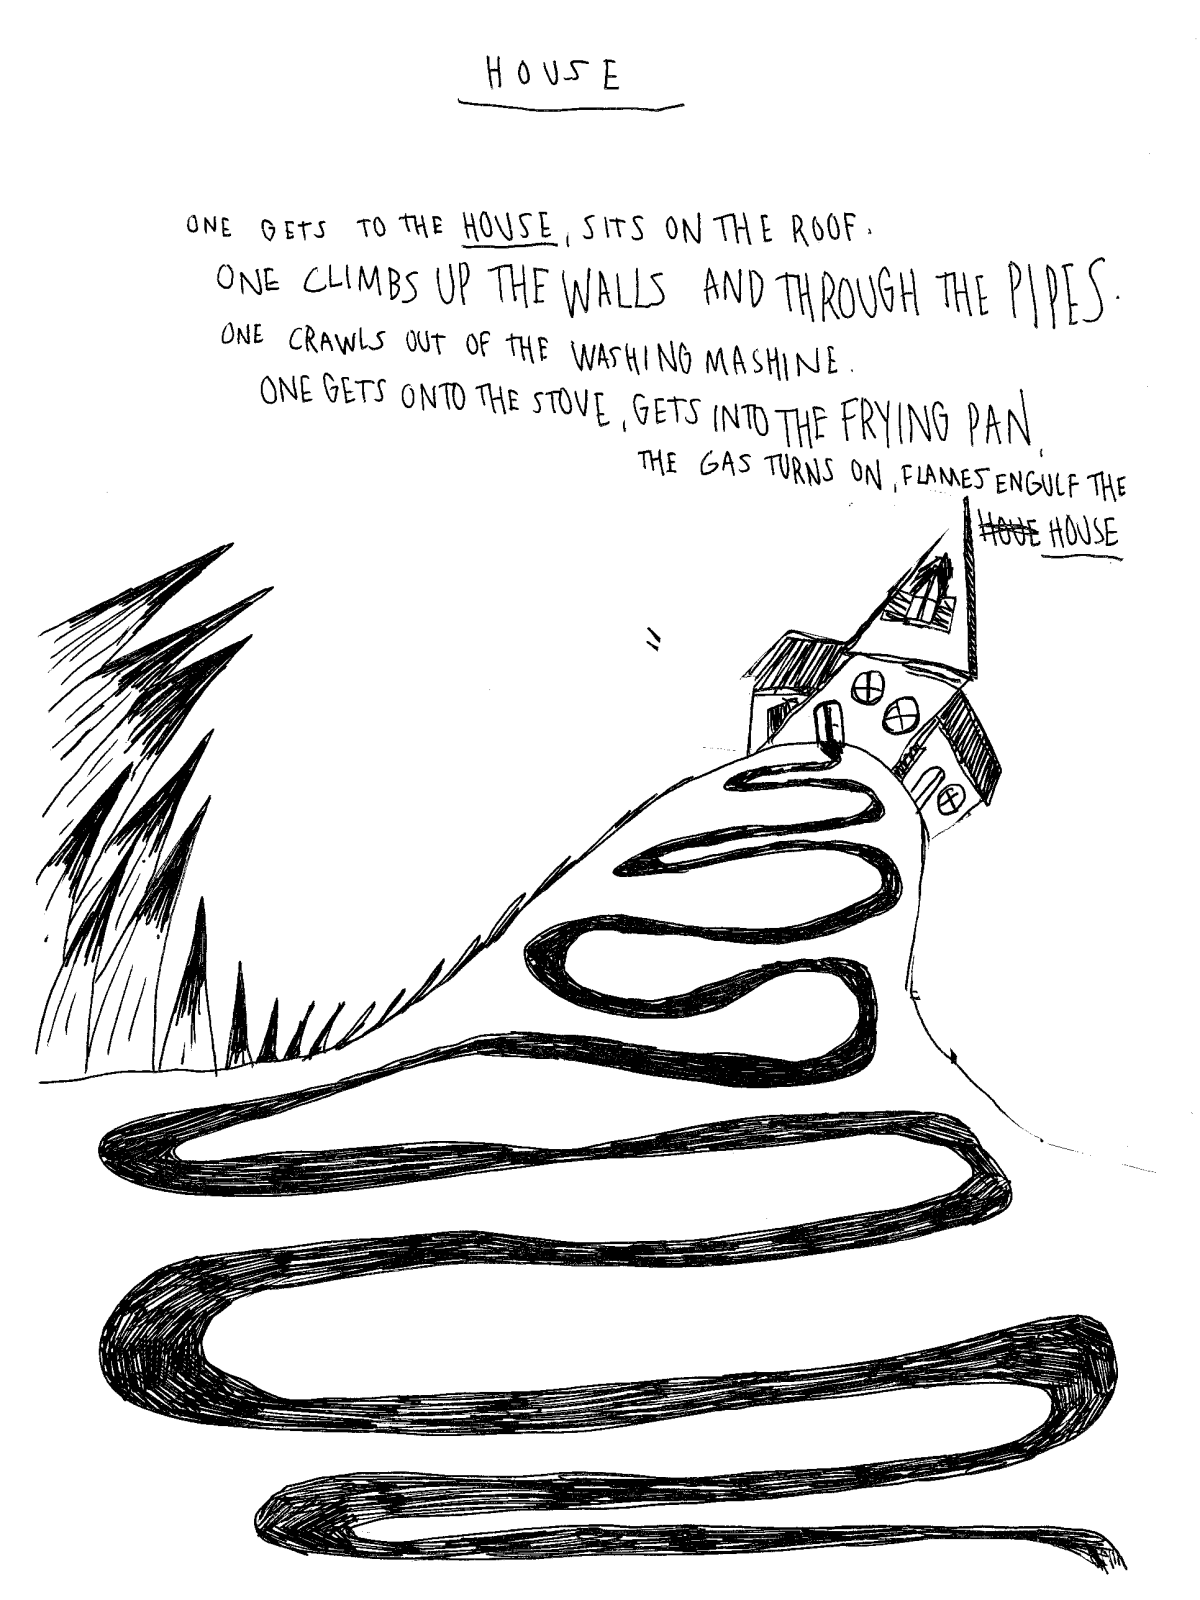 HOUSE
ONE GETS TO THE HOUSE, SITS ON THE ROOF.
ONE CLIMBS UP THE WALLS AND THROUGH THE PIPES.
ONE CRAWLS OUT OF THE WASHING MASHINE.
ONE GETS ONTO THE STOVE, GETS INTO THE FRYING PAN,
THE GAS TURNS ON, FLAMES ENGULF THE
HOUE HOUSE